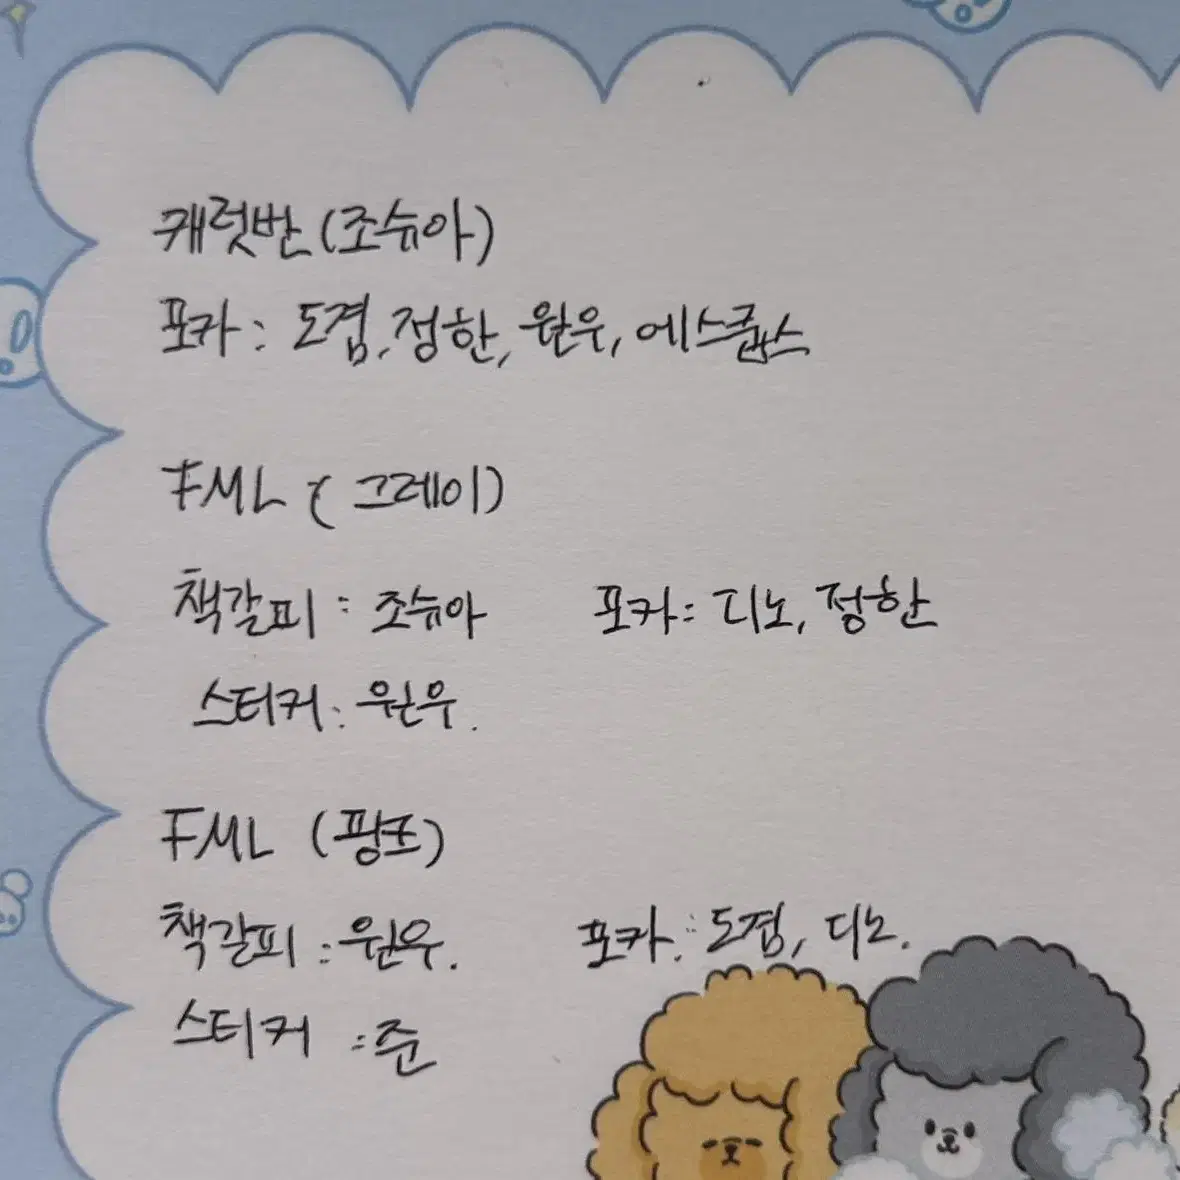 캐럿반 (조슈아)
포카 : 도겸, 정한, 원우, 에스쿱스
FML ( 그레이)
책갈피 : 조슈아 포카 : 디노, 정한
스티커 : 원우.
FML (핑크)
책갈피 : 원우. 포카 : 도겸, 디노.
스티커 : 준